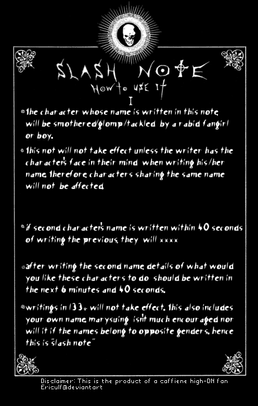 SLASH NOTE
How to use it
I
The character whose name is written in this note
will be smothered/glomp/tackled by a rabid fangirl
or boy.
This not will not take effect unless the writer has the
character's face in their mind when writing his/her
name. Therefore, characters sharing the same name
will not be affected.
if second character's name is written within 40 seconds
of writing the previous, they will xxxx
after writing the second name, details of what would
you like these characters to do should be written in
the next 6 minutes and 40 seconds.
writings in l33+ will not take effect. This also includes
your own name, marysuing isn't much encouraged nor
will it if the names belong to opposite genders, hence
this is "slash note"
Disclaimer: This is the product of a caffiene high-DN fan
Ericulf@deviantart